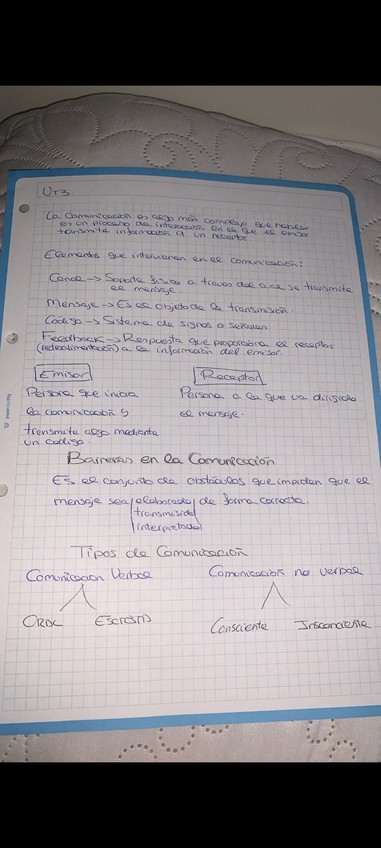 UT3.
La Comunicación es algo más complejo que hablar
es un proceso de interacción en el que el emisor
transmite información a un receptor.
Elementos que intervienen en el comunicación:
Canal → Soporte físico a traves del cual se transmite
el mensaje.
Mensaje → Es el objeto de la transmisión.
Código → Sistema de signos o señales.
Feedback → Respuesta que proporciona el receptor
(retroalimentación) a la información del emisor.
Emisor Receptor
Persona que inicia Persona a la que va dirigido
la comunicación y el mensaje.
transmite algo mediante
un codigo.
Barreras en la Comunicación
Es el conjunto de obstáculos que impiden que el
mensaje sea elaborado de forma correcta.
transmitido
interpretado
Tipos de Comunicación
Comunicacion Verbal Comunicación no verbal
Oral Escrita Consciente Insconciente